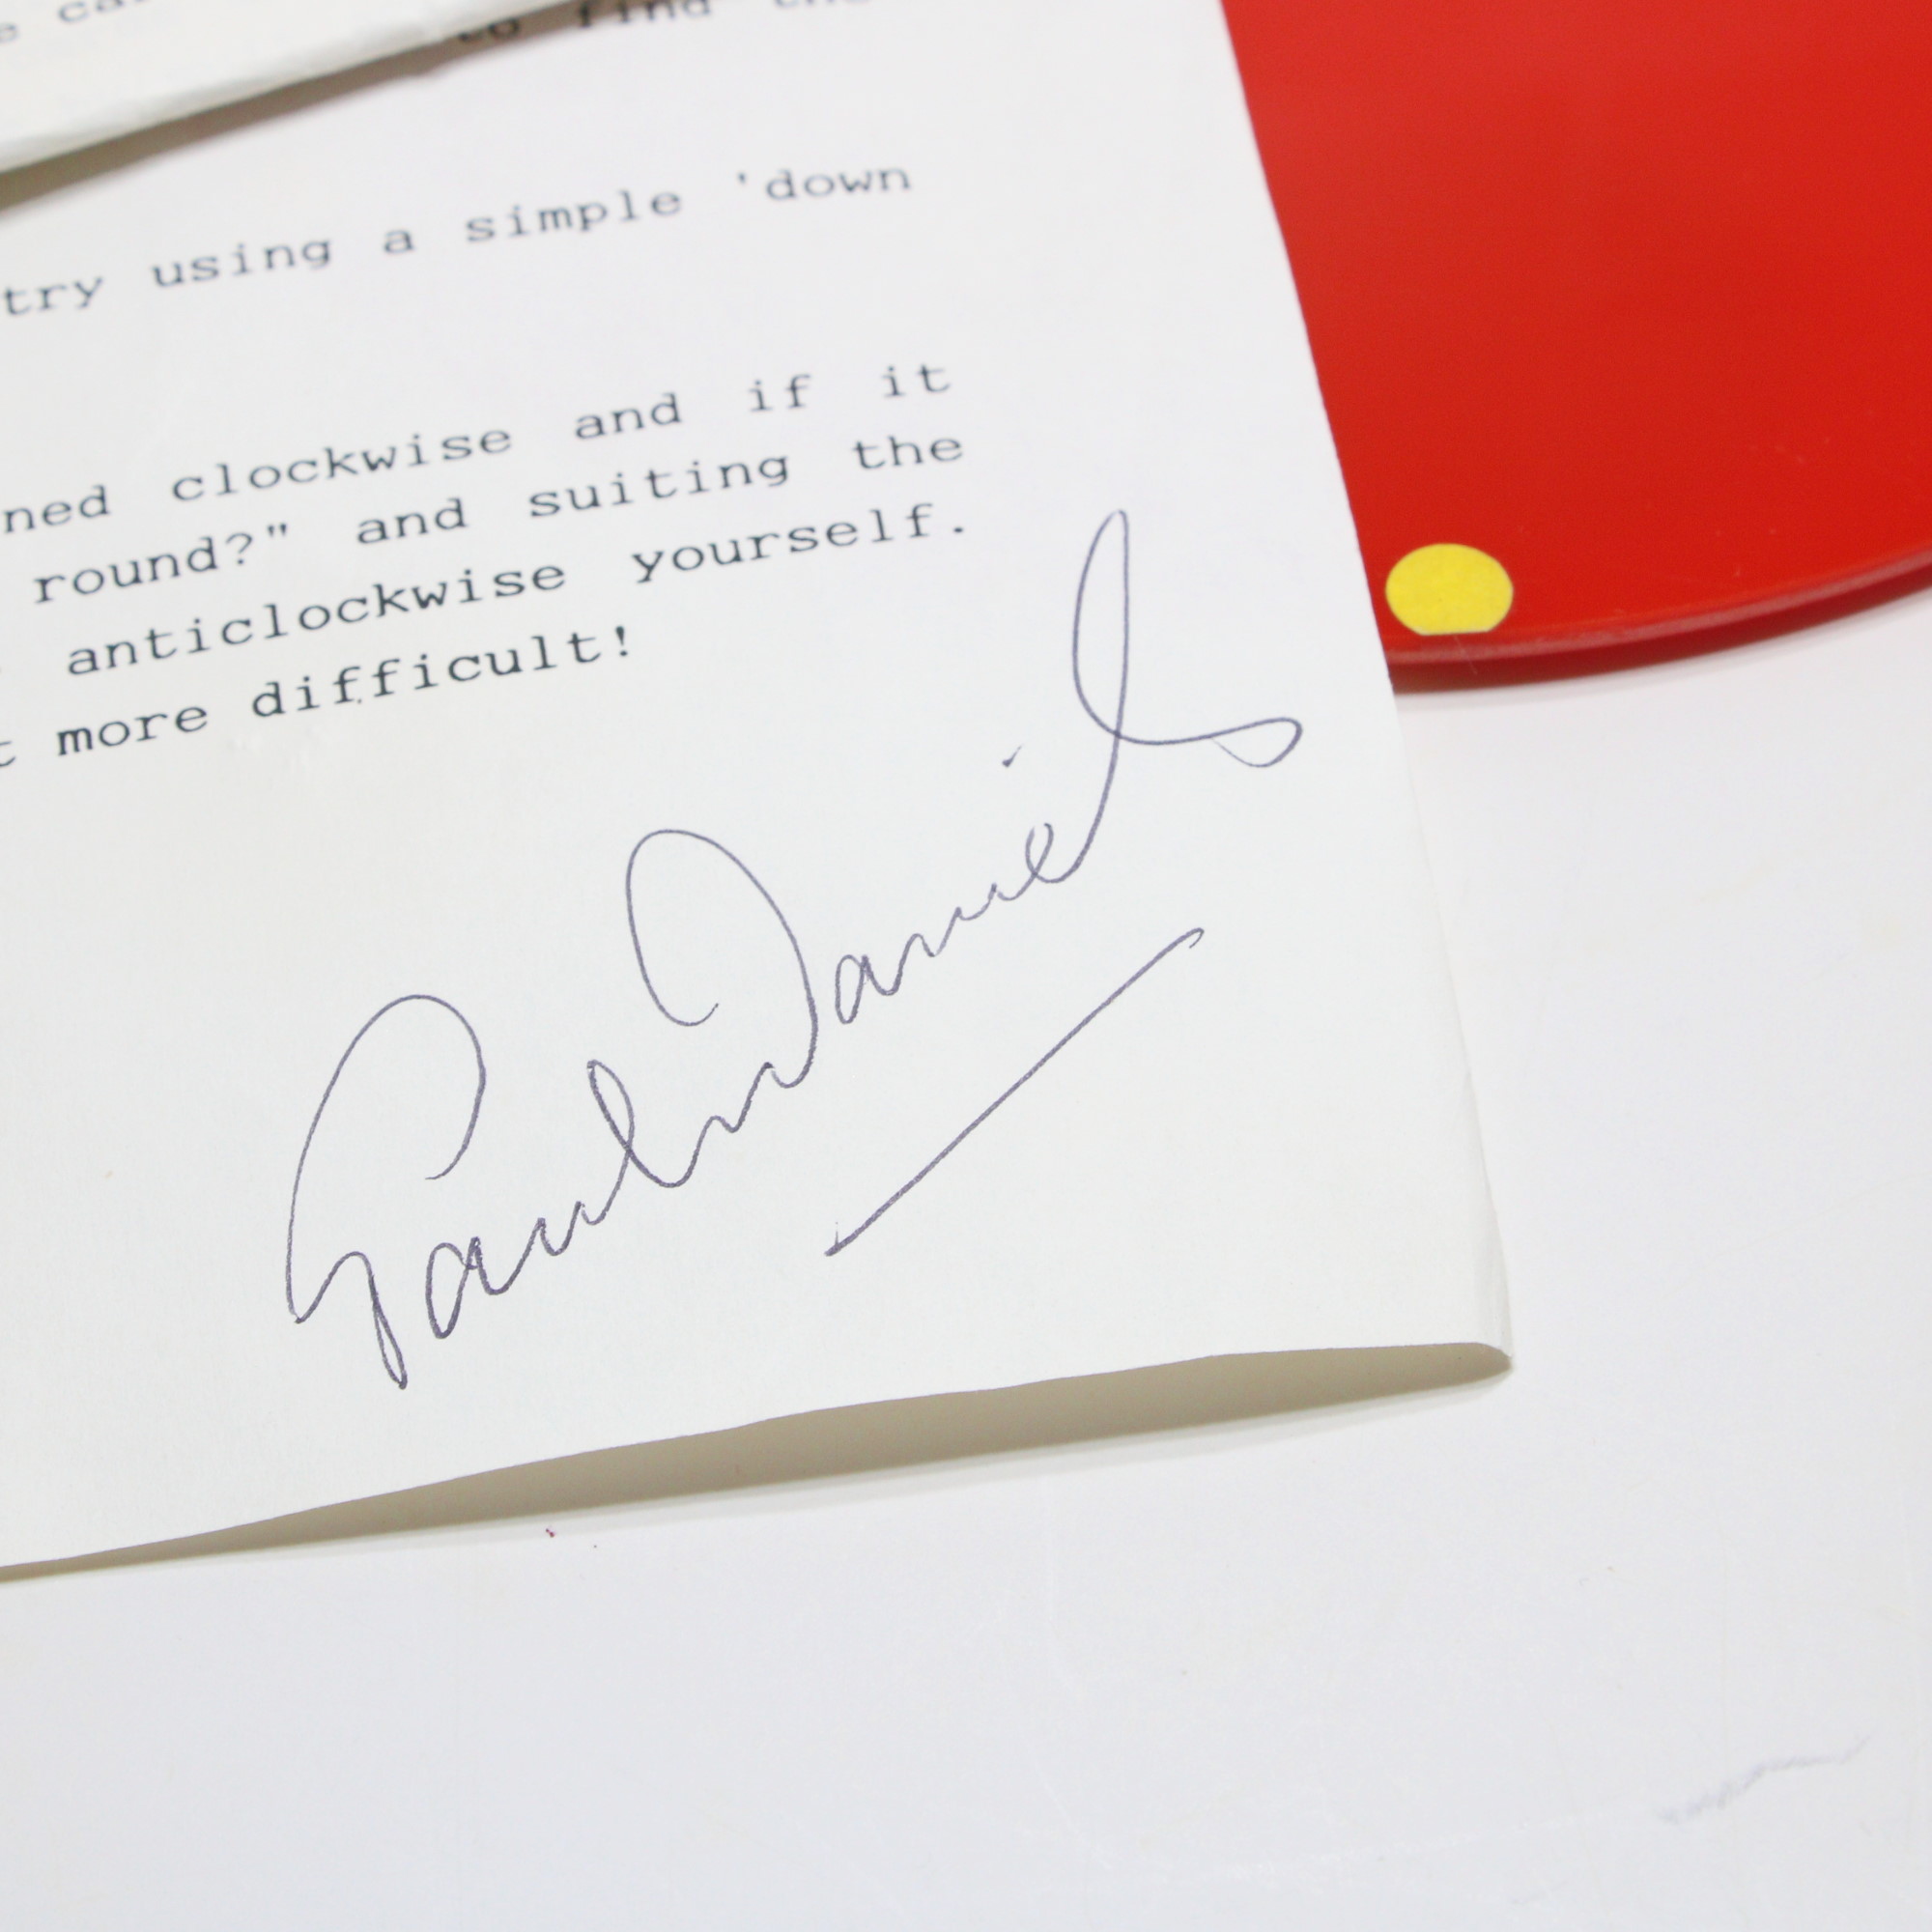 to find the
try using a simple 'down
ned clockwise and if it
round?" and suiting the
anticlockwise yourself.
more difficult!
Paul Daniels